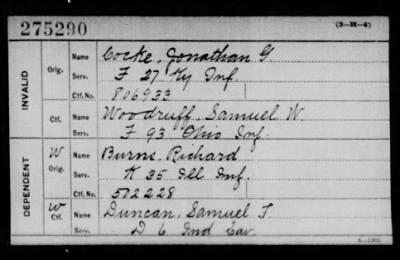 275290 (3-H-4)
INVALID Orig. Name Cocke, Jonathan G.
Serv. F 27 Ky Inf.
Ctf. No. 806933
Ctf. Name Woodruff, Samuel W.
Serv. F 93 Ohio Inf.
DEPENDENT W Orig. Name Burns, Richard
Serv. K 35 Ill Inf.
Ctf. No. 502228
W Ctf. Name Duncan, Samuel T.
Serv. D 6 Ind Cav.